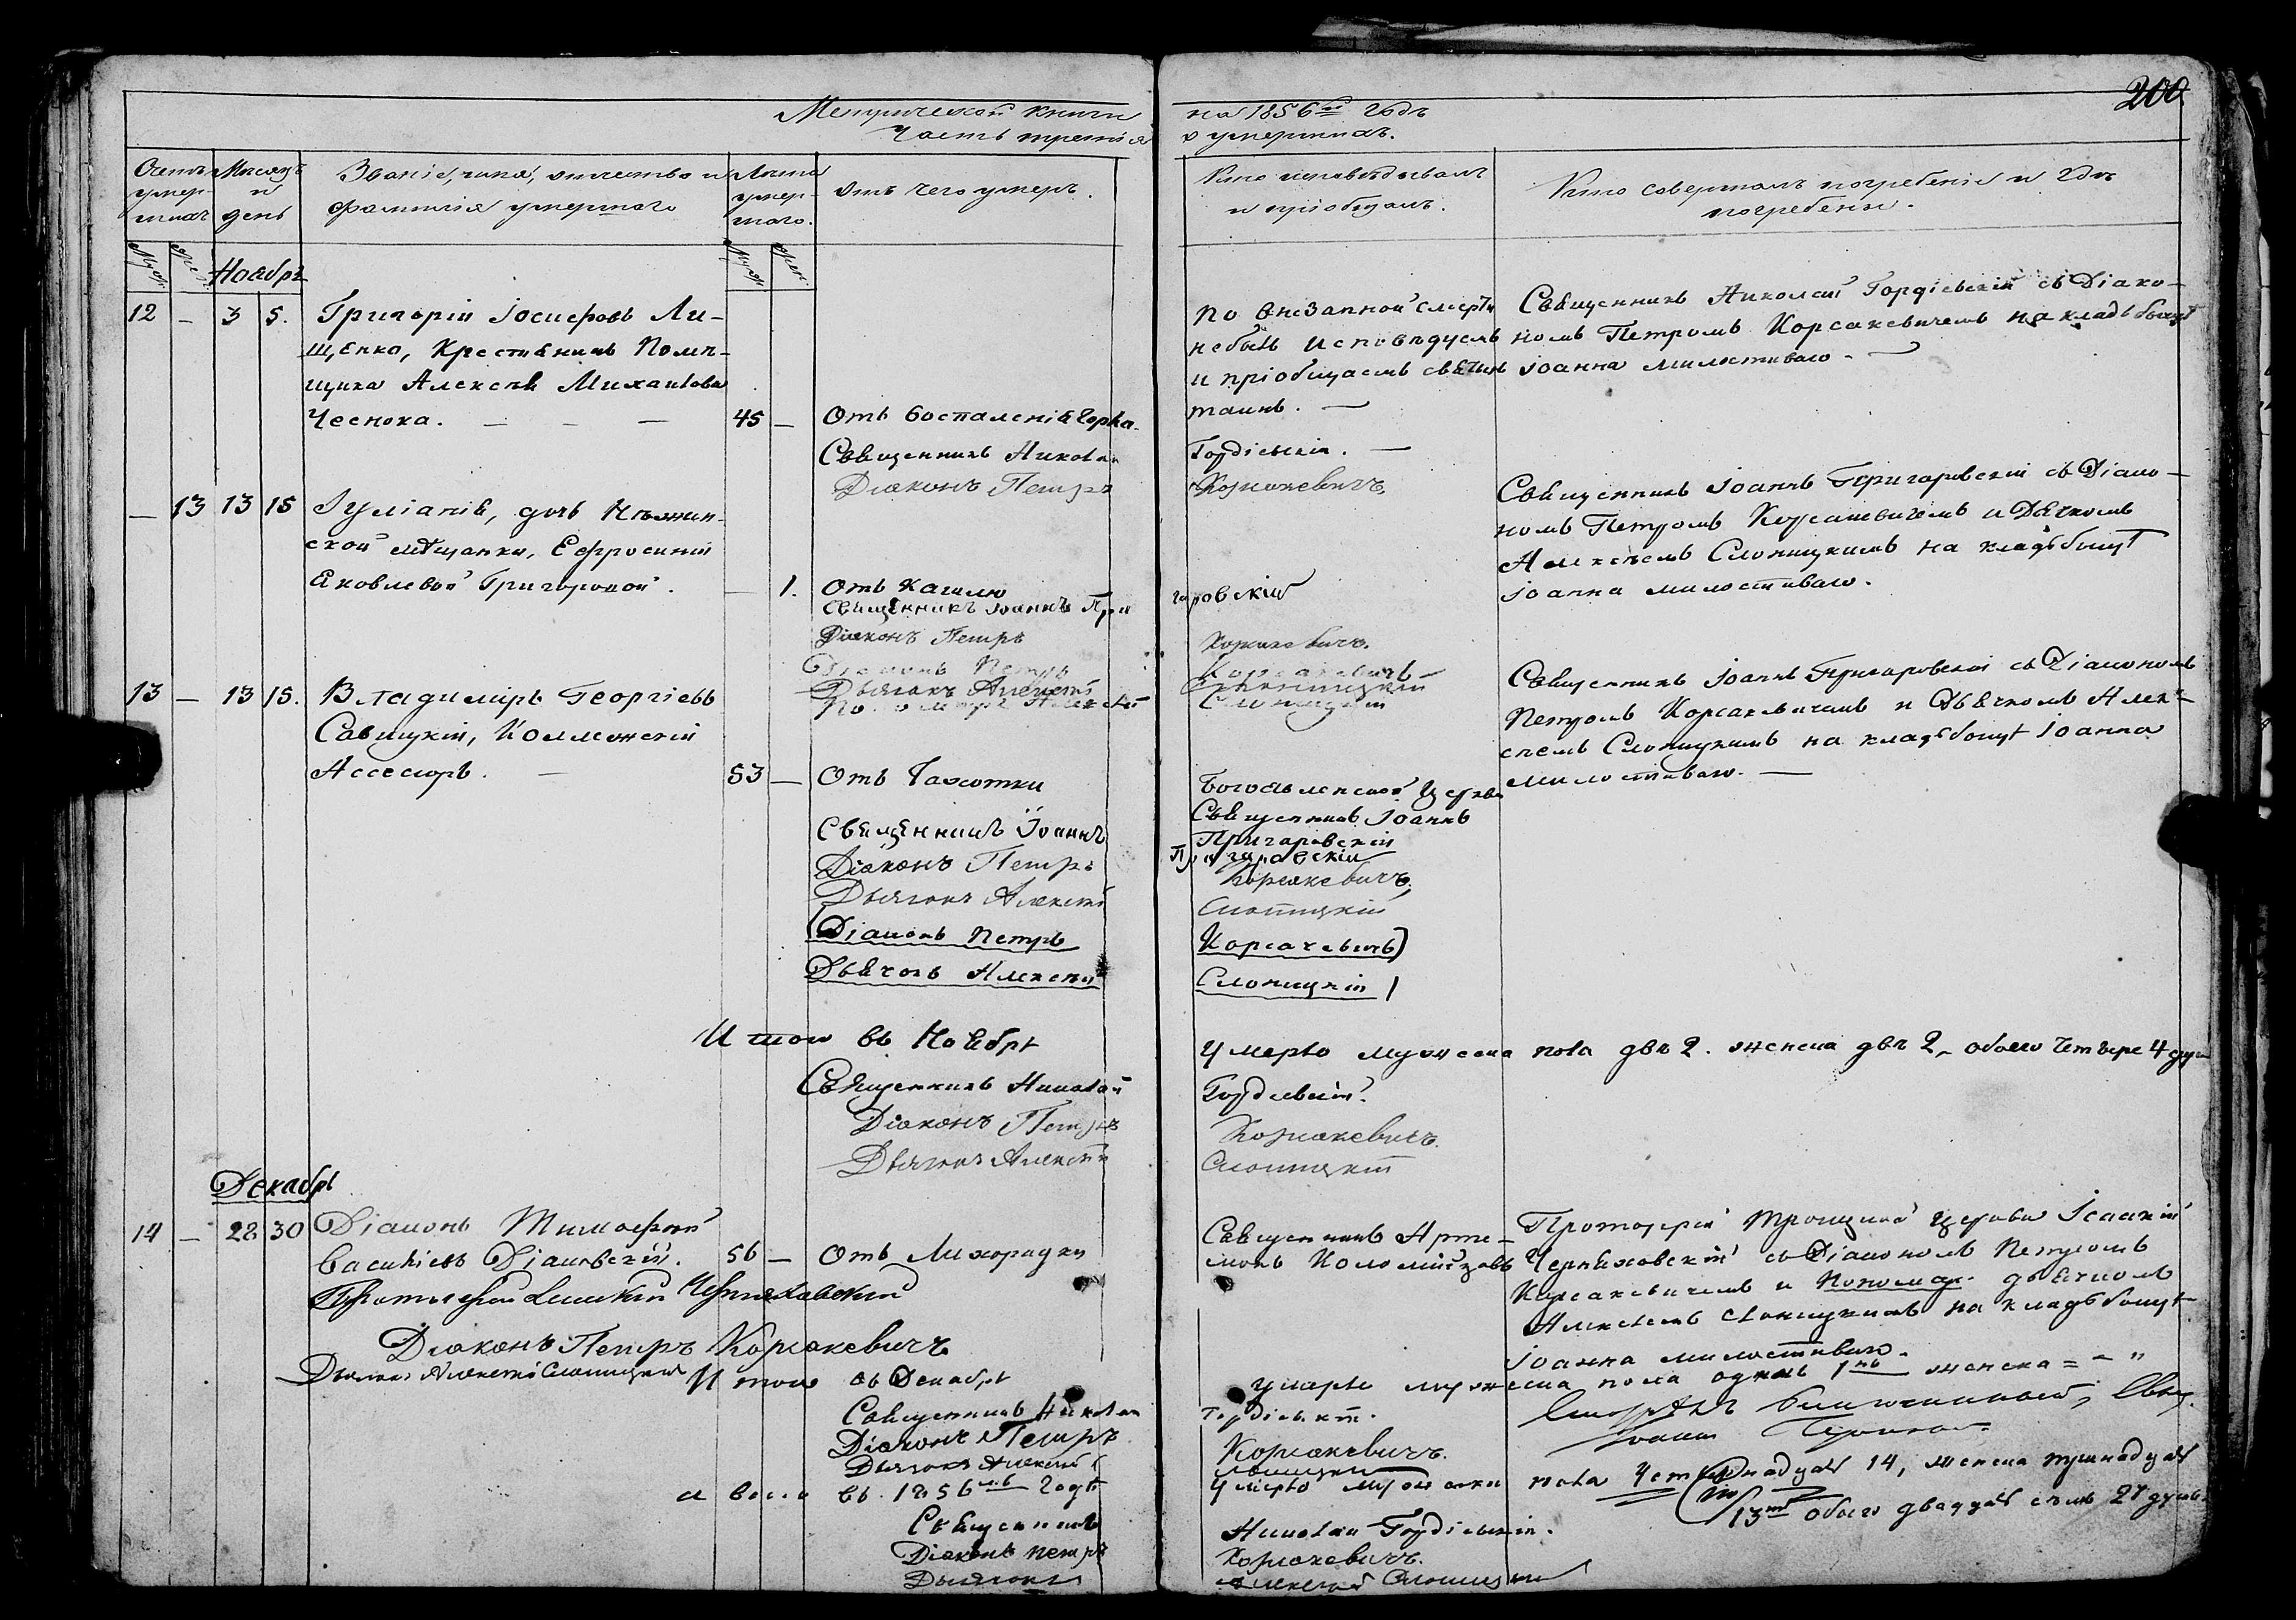 200
Метрической книги на 1856й Годъ
Часть третія о умершихъ.
Счетъ умер-шихъ
Мѣсяцъ и день
Званіе, имя, отчество и фамилія умершаго
Лѣта умер-шаго.
Отъ чего умеръ.
Кто исповѣдывалъ и пріобщалъ.
Кто совершалъ погребеніе и гдѣ погребены.
Муж. Жен. Ноябрь Муж. Жен.
12 — 3 5. Григорій Іосифовъ Ли-
щенко, Крестьянинъ Помѣ-
щика Алексѣя Михаилова
Чеснока. — — — 45 — Отъ воспаленія горла.
По внезапной смерти
небылъ исповѣдуемъ
и пріобщаемъ святыхъ
таинъ. —
Священникъ Николай Гордіевскій съ Діако-
номъ Петромъ Корсакевичемъ на кладбищѣ
Іоанна милостиваго. —
Священникъ Николай Гордіевскій. —
Діаконъ Петръ Корсакевичъ.
— 13 13 15 Іуліанія, дочь Нѣжин-
ской мѣщанки, Ефросиніи
Яковлевой Григоровой. — 1. Отъ Кашлю
Священникъ Іоаннъ Пригаровскій с Діако-
номъ Петромъ Корсакевичемъ и Дьячкомъ
Алексѣемъ Слоницкимъ на кладбищѣ
Іоанна милостиваго.
Священникъ Іоаннъ Пригаровскій
Діаконъ Петръ Корсакевичъ.
Діаконъ Петръ Корсакевичъ
Дьячокъ Алексѣй Слоницкій
Алексѣй Слоницкій
13 — 13 15. Владиміръ Георгіевъ
Савицкій, Коллежскій
Ассесоръ. — 53 — Отъ Чахотки
Богоявленской Церкви
Священникъ Іоаннъ
Пригаровскій
Священникъ Іоаннъ Пригаровскій съ Діакономъ
Петромъ Корсакевичемъ и Дьячкомъ Алек-
сѣемъ Слоницкимъ на кладбищѣ Іоанна
милостиваго. —
Священникъ Іоаннъ Пригаровскій
Діаконъ Петръ Корсакевичъ.
Дьячокъ Алексѣй Слоницкій
(Діаконъ Петръ Корсакевичъ)
Дьячокъ Алексѣй Слоницкій)
Итого въ Ноябрѣ Умерло мужеска пола два 2. женска двѣ 2, обоего Четыре 4 душ
Священникъ Николай Гордіевскій.
Діаконъ Петръ Корсакевичъ.
Дьячокъ Алексѣй Слоницкій
Декабрь
14 — 28 30 Діаконъ Тимофей
Васильевъ Діаковскій. 56 — Отъ Лихорадки
Священникъ Арте-
монъ Коломійцовъ
Протоіерей Троицкой церкви Ісаакій
Черняховскій съ Діакономъ Петромъ
Корсакевичемъ и Пономар. дьячкомъ
Алексѣемъ Слоницкимъ на кладбищѣ
Іоанна милостиваго.
Протоіерей Ісаакій Черняховскій
Діаконъ Петръ Корсакевичъ
Дьячокъ Алексѣй Слоницкій
Итого въ Декабрѣ Умерло мужеска пола одинъ 1нъ женска = - "
Священникъ Николай Гордіевскій.
Діаконъ Петръ Корсакевичъ.
Дьячокъ Алексѣй Слоницкій
Іоаннъ
а всего въ 1856мъ Годѣ Умерло мужеска пола Четырнадцать 14, женска тринадцать
13ть обоего двадцать семь 27 душъ.
Священникъ Николай Гордіевскій.
Діаконъ Петръ Корсакевичъ.
Дьячокъ Алексѣй Слоницкій